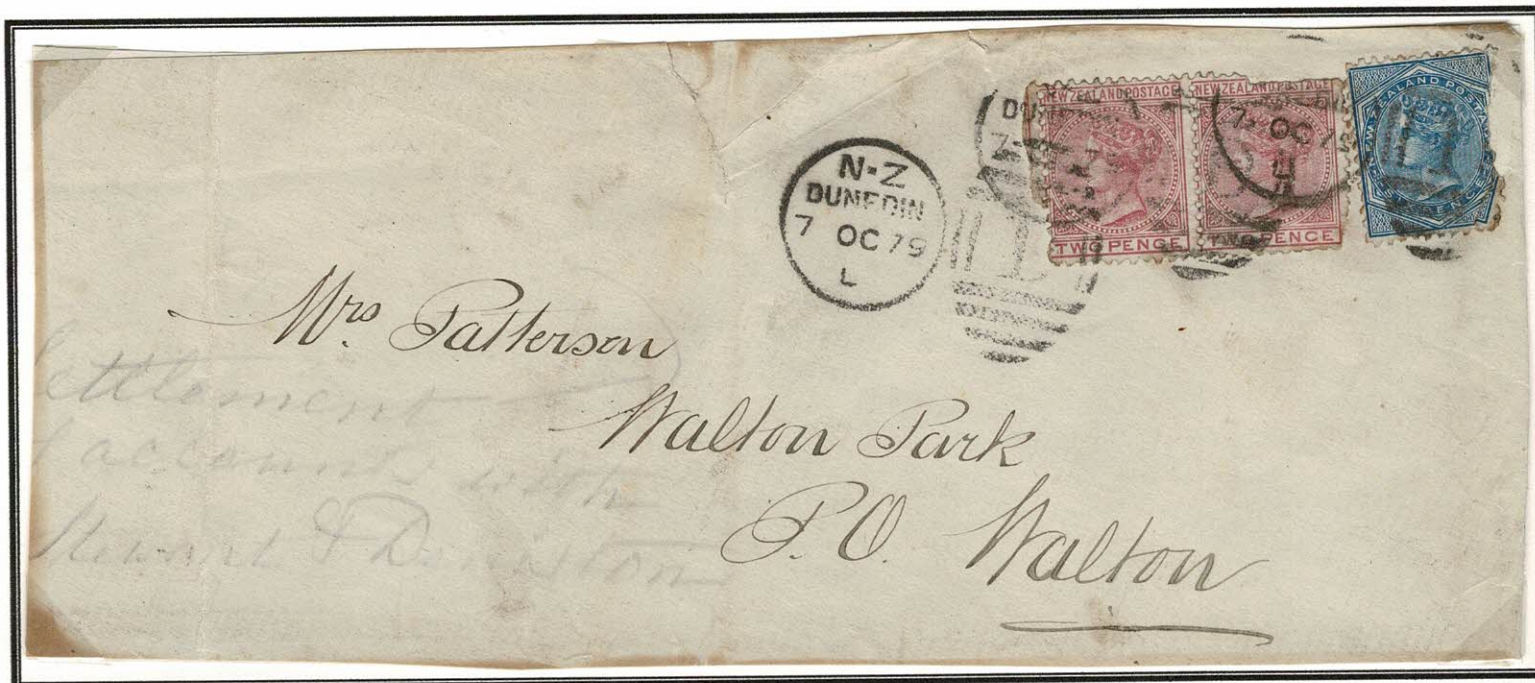 NEW ZEALAND POSTAGE
TWO PENCE
NEW ZEALAND POSTAGE
TWO PENCE
NEW ZEALAND POSTAGE
SIX PENCE
N-Z
DUNEDIN
7 OC 79
L
7 OC 79
Mrs. Patterson
Walton Park
P.O. Walton
Settlement
accounts with
Stewart & Denniston